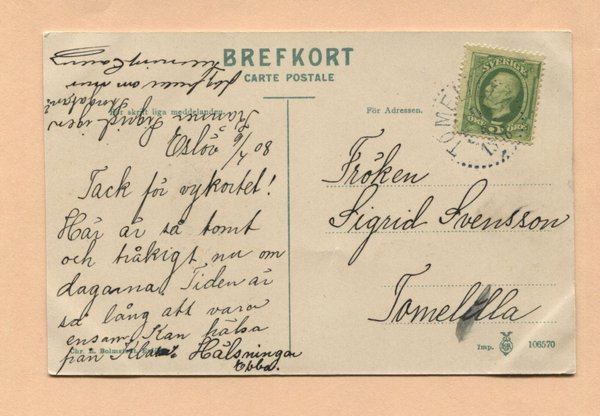 BREFKORT
CARTE POSTALE
För skriftliga meddelanden.
För Adressen.
SVERIGE
5
ÖRE
TOMEL
Oslöv 26/4 08
Tack för vykortet!
Här är så tomt
och tråkigt nu om
dagarna. Tiden är
så lång att vara
ensam. Kan hälsa
från
Hälsningar
Ebba.
Fröken
Sigrid Svensson
Tomelilla
Imp. 106570